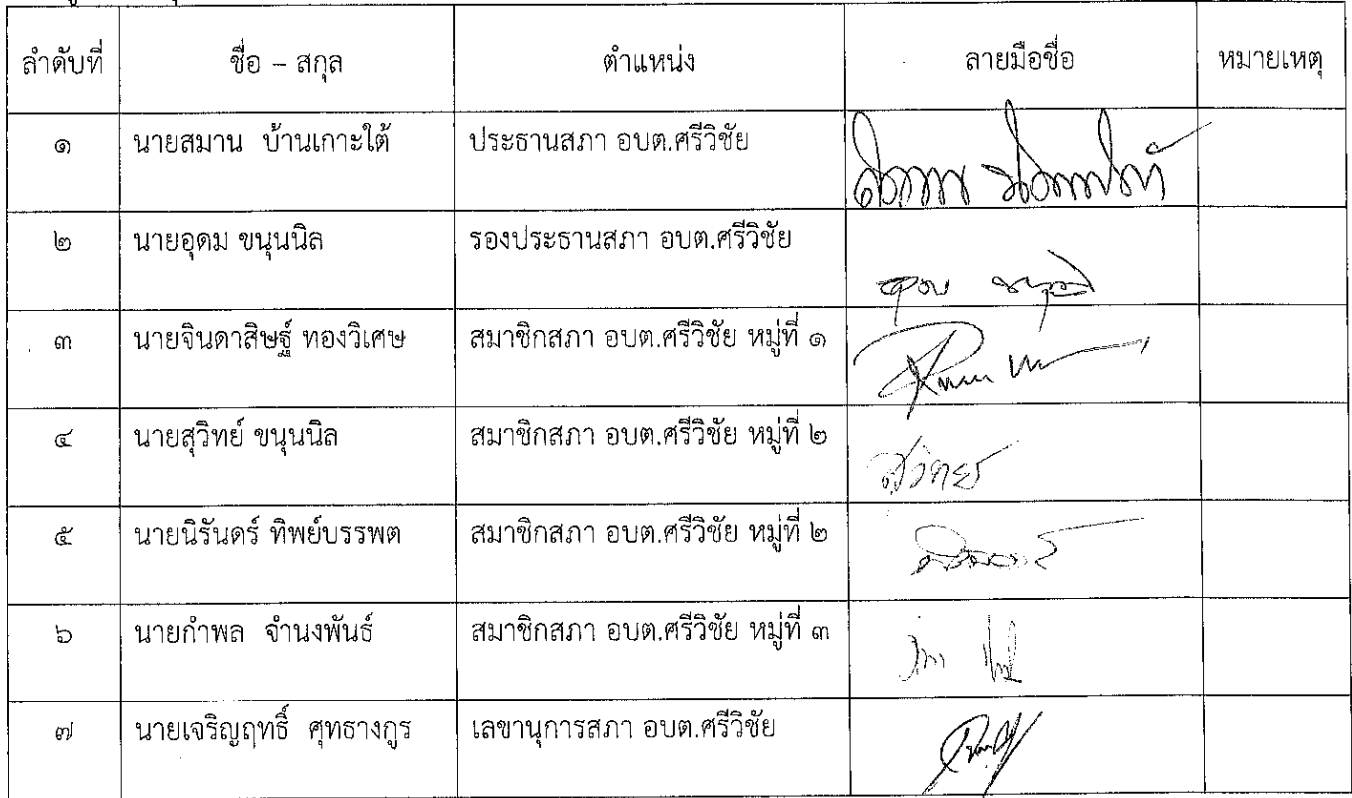 ลำดับที่ ชื่อ – สกุล ตำแหน่ง ลายมือชื่อ หมายเหตุ
๑ นายสมาน บ้านเกาะใต้ ประธานสภา อบต.ศรีวิชัย
๒ นายอุดม ขนุนนิล รองประธานสภา อบต.ศรีวิชัย
๓ นายจินดาสิษฐ์ ทองวิเศษ สมาชิกสภา อบต.ศรีวิชัย หมู่ที่ ๑
๔ นายสุวิทย์ ขนุนนิล สมาชิกสภา อบต.ศรีวิชัย หมู่ที่ ๒ สุวิทย์
๕ นายนิรันดร์ ทิพย์บรรพต สมาชิกสภา อบต.ศรีวิชัย หมู่ที่ ๒
๖ นายกำพล จำนงพันธ์ สมาชิกสภา อบต.ศรีวิชัย หมู่ที่ ๓
๗ นายเจริญฤทธิ์ ศุทธางกูร เลขานุการสภา อบต.ศรีวิชัย